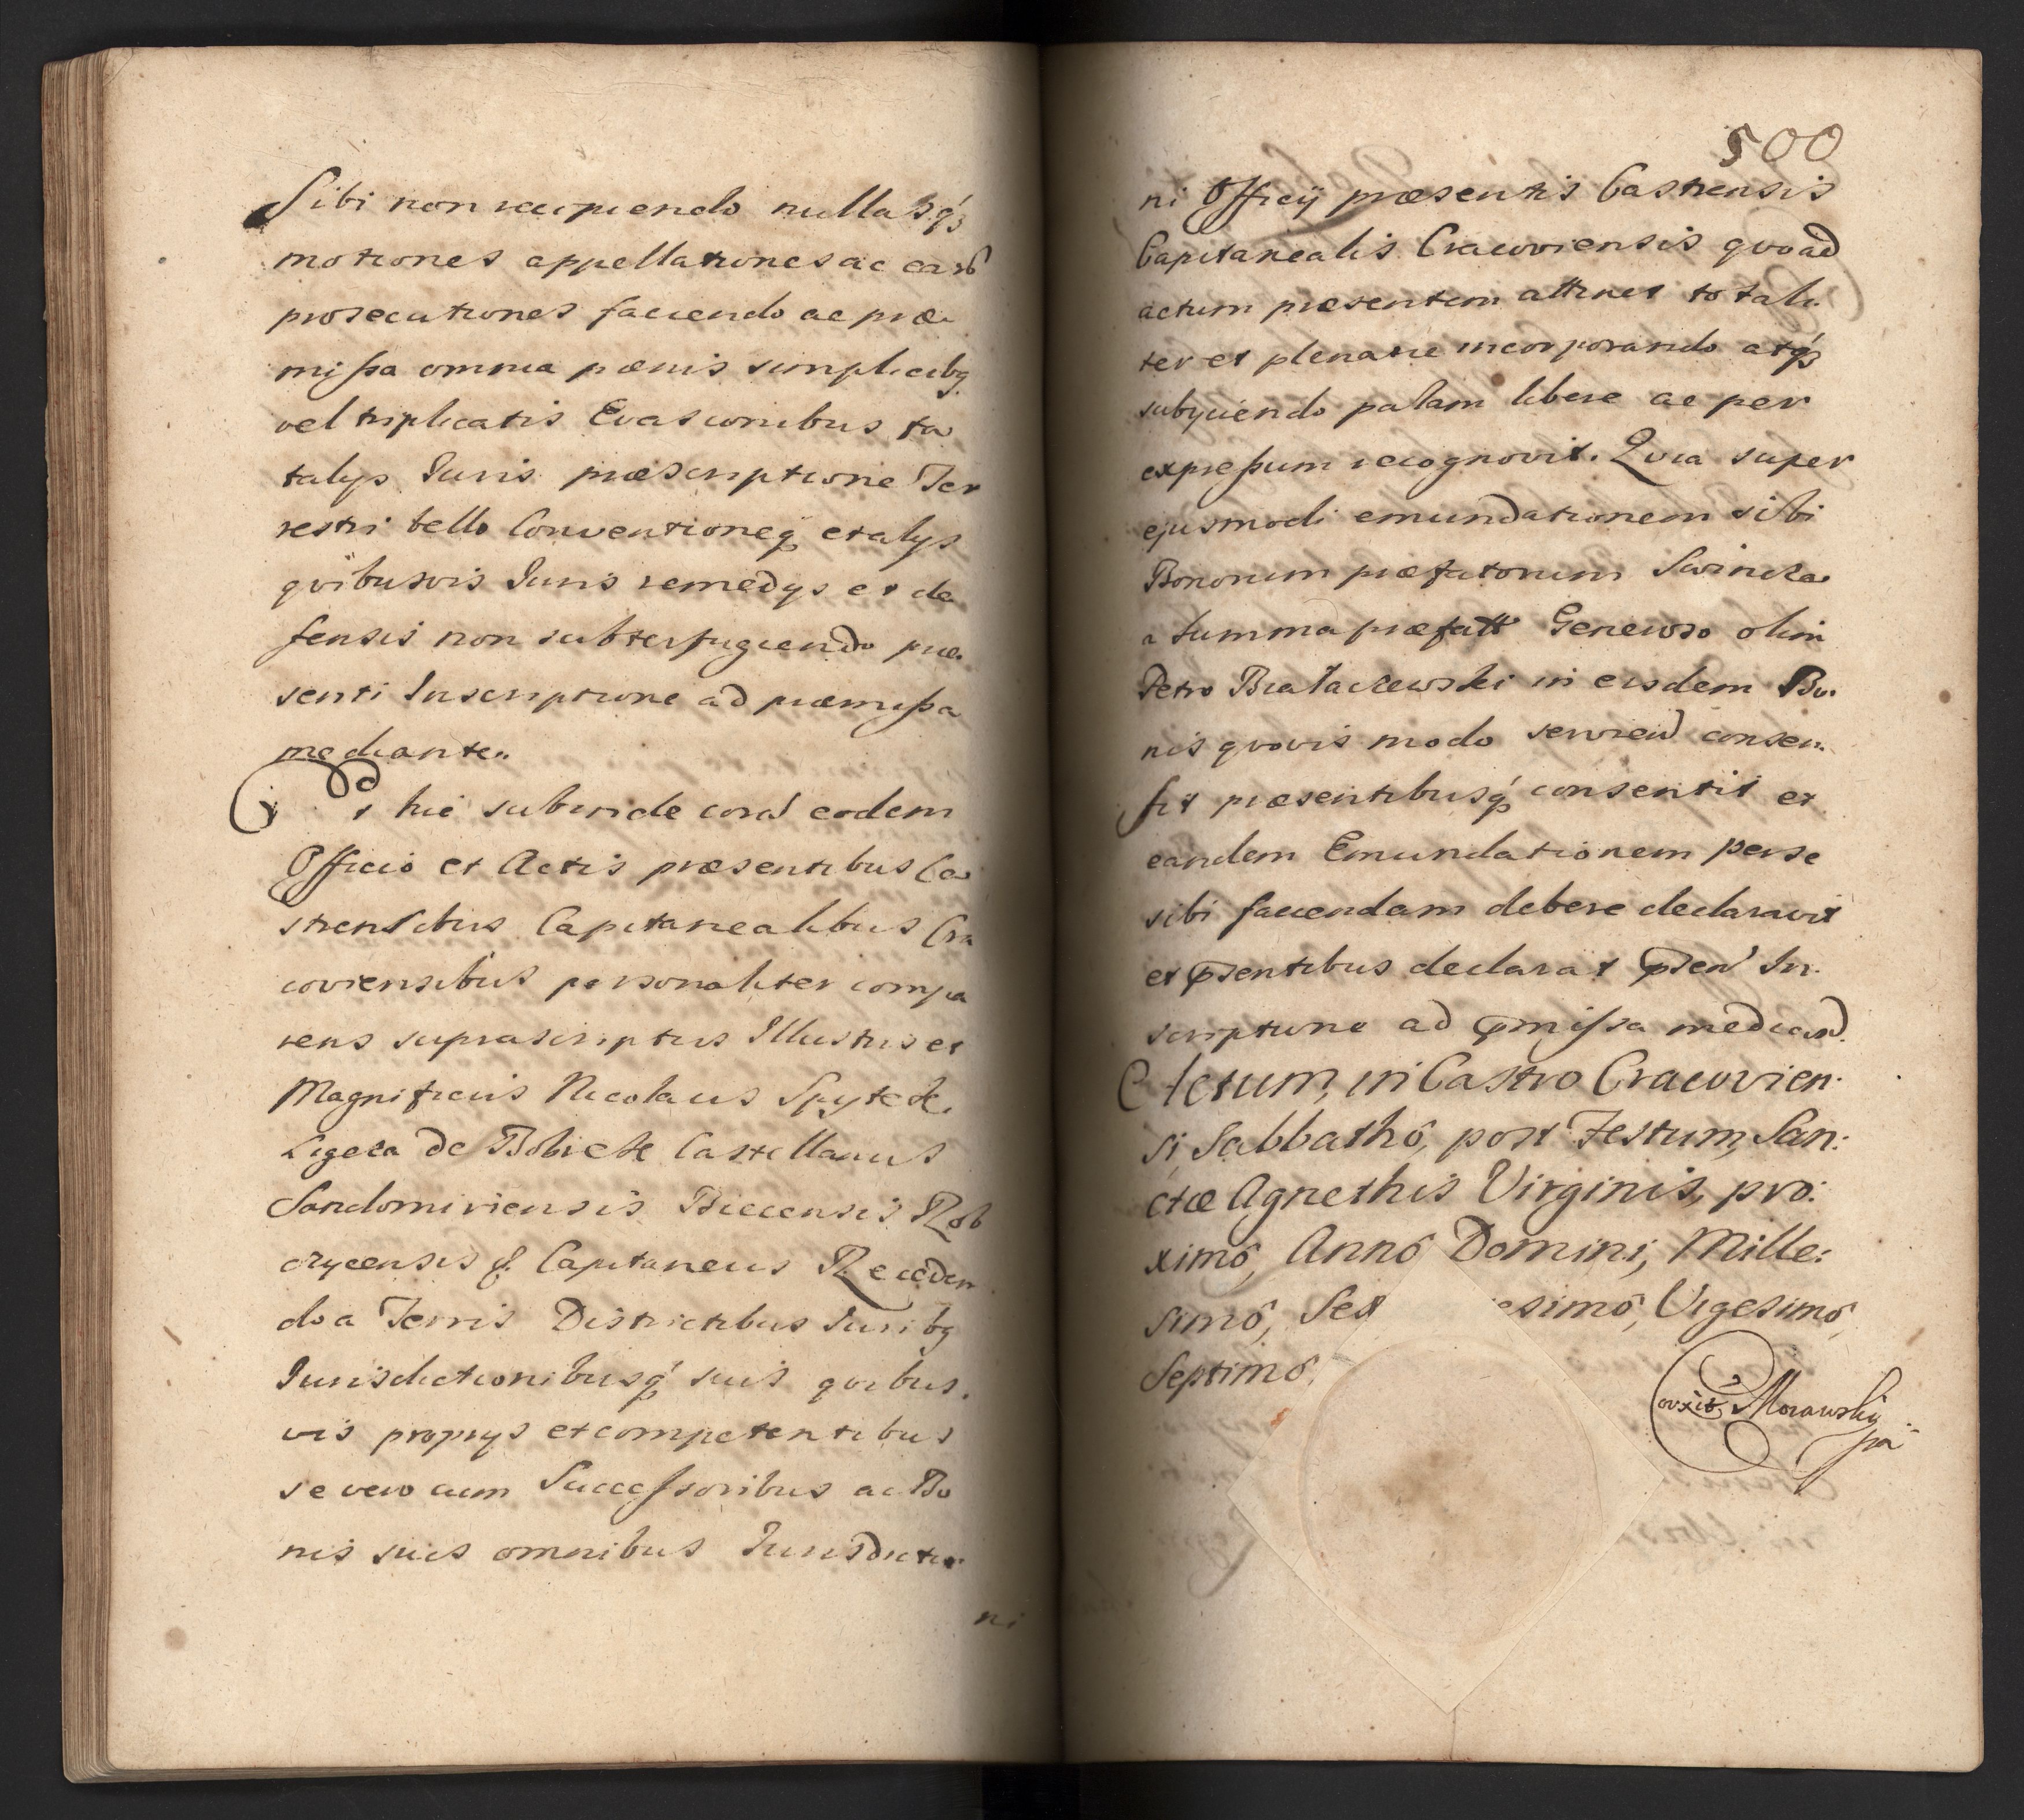 Sibi non recipiendo nullasq́ʒ
motiones appellationes ac earo
prosecutiones faciendo ac præ
mißa omnia pœnis simplicibq
vel triplicatis Evasionibus fa
talijs Juris præscriptione Ter
restri bello Conventioneq et alijs
qvibusvis Juris remedijs et de
fensis non subterfugiendo præ
senti Inscriptione ad præmißa
mediante.
Et hic subinde corā eodem
Officio et Actis præsentibus Ca
strensibus Capitanealibus Cra
coviensibus personaliter compa
rens suprascriptus Illustris et
Magnificus Nicolaus Spytek
Ligeza de Bobrek Castellanus
Sandomiriensis Biecensis Rob
czycensis Capitaneus Receden
do a Terris Districtibus Juribq
Jurisdictionibusq́ suis qvibus
vis proprijs et competentibus
se vero cum Successoribus ac Bo
nis suis omnibus Jurisdictio
ni
500
ni Officij præsentis Castrensis
Capitanealis Cracoviensis qvoad
actum præsentem attinet totali
ter et plenarie incorporando atq́ʒ
subijciendo palam libere ac per
expreßum recognovit. Qvia super
ejusmodi emundationem sibi
Bonorum præfatorum Swincza
a summa præfatt Generoso olim
Petro Białaczewski in eisdem Bo.
nis qvovis modo servien consen
sit præsentibusq́ consentit et
eandem Emundationem per se
sibi faciendam debere declaravit
et pſentibus declarat pſen In
scriptione ad pmissa mediand.
Actum, in Castro Cracovien:
si, Sabbathô, post Festum, San:
ctæ Agnethis Virginis, pro:
ximô, Annô Domini, Mille:
simô, Sex esimô, Vigesimô,
Septimô.
Morawski